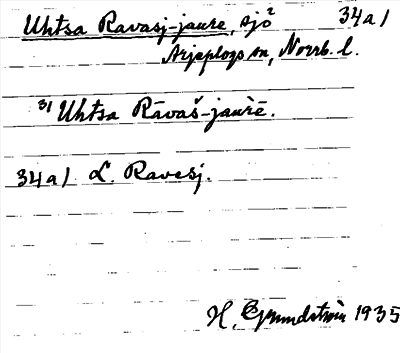 Uhtsa Ravasj-jaure, sjö 34a/
Arjeplogs sn, Norrb. l.
31 Uhtsa Rāvaš-jaurē.
34a/ L. Ravesj.
H. Grundström 1935